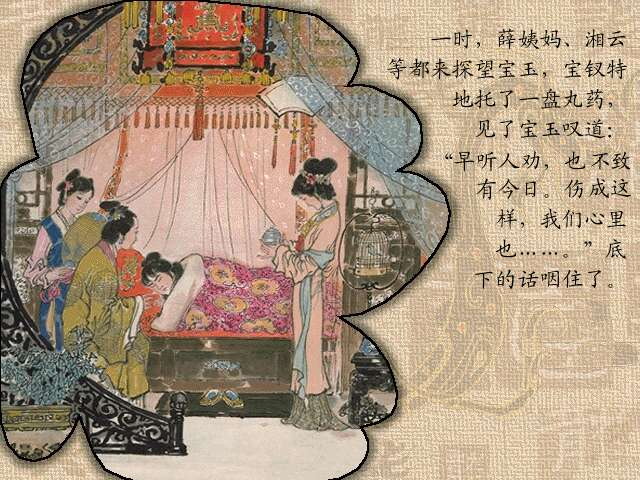 一时，薛姨妈、湘云
等都来探望宝玉，宝钗特
地托了一盘丸药，
见了宝玉叹道：
“早听人劝，也不致
有今日。伤成这
样，我们心里
也……。”底
下的话咽住了。